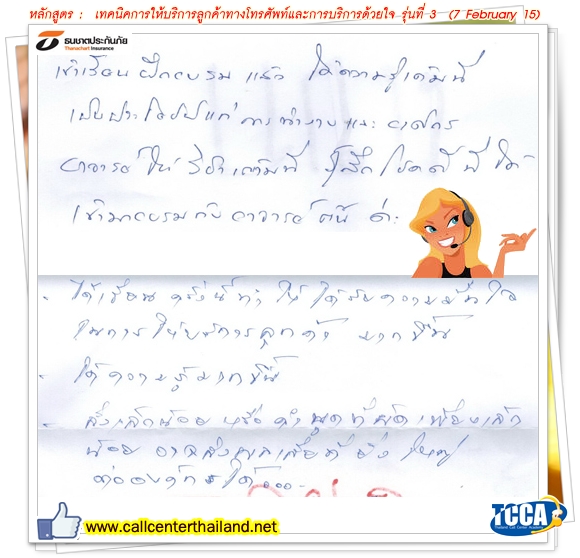 หลักสูตร : เทคนิคการให้บริการลูกค้าทางโทรศัพท์และการบริการด้วยใจ รุ่นที่ 3 (7 February 15)
ธนชาตประกันภัย
Thanachart Insurance
เข้าเรียน ฝึกอบรม แล้ว ได้ความรู้เต็มที่
เป็นประโยชน์แก่ การทำงาน และ องค์กร
อาจารย์ ให้ วิชาเต็มที่ รู้สึก โชคดี ที่ ได้
เข้ามาอบรม กับ อาจารย์ ค่ะ
- ได้เรียน ครั้งนี้ทำ ให้ ได้รับความมั่นใจ
ในการ ให้บริการลูกค้า มากขึ้น
- ได้ความรู้มากขึ้น
- สิ่งเล็กน้อย หรือ คำพูดที่ผิดเพียงเล็ก
น้อย อาจส่งผลเสียที่ยิ่งใหญ่
ต่อองค์กรได้...
www.callcenterthailand.net
TCCA
Thailand Call Center Academy